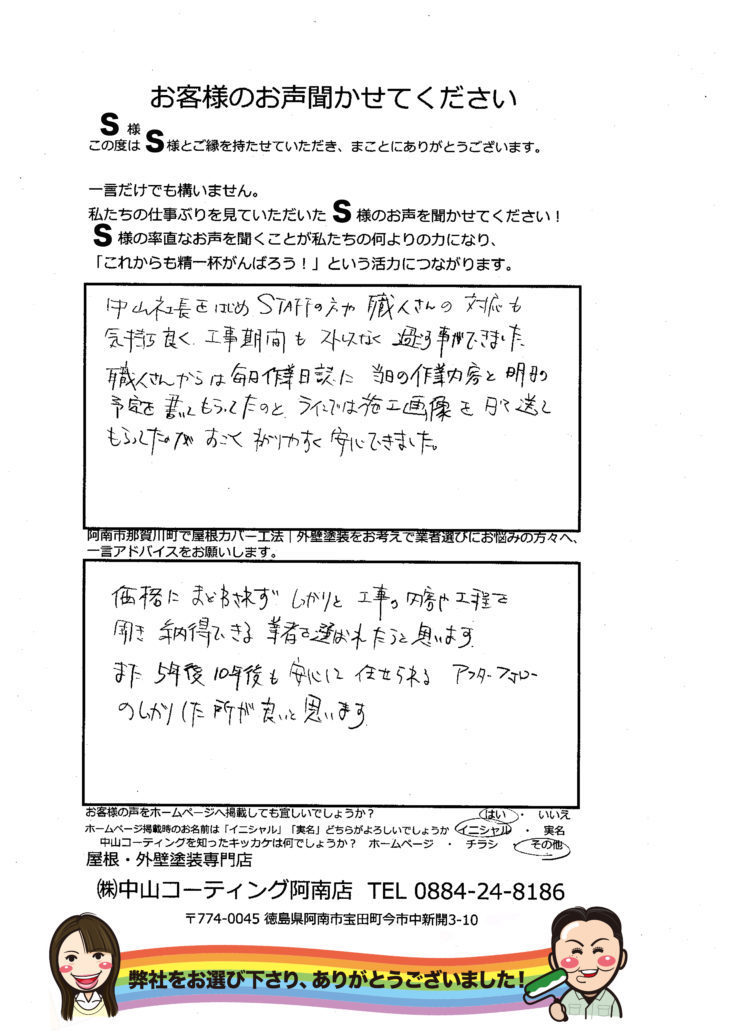 お客様のお声聞かせてください
S 様
この度は S 様とご縁を持たせていただき、まことにありがとうございます。
一言だけでも構いません。
私たちの仕事ぶりを見ていただいた S 様のお声を聞かせてください！
S 様の率直なお声を聞くことが私たちの何よりの力になり、
「これからも精一杯がんばろう！」という活力につながります。
中山社長をはじめ STAFFの方々 職人さんの 対応も
気持ち良く、工事期間も ストレスなく 過ごす事ができました。
職人さんからは 毎日作業日誌に 当日の作業内容と 明日の
予定を 書いてもらってたのと、ラインでは施工画像を 日々送って
もらってたのが すごく わかりやすく 安心できました。
阿南市那賀川町で屋根カバー工法｜外壁塗装をお考えで業者選びにお悩みの方々へ、
一言アドバイスをお願いします。
価格に まどわされず しっかりと 工事の内容や工程を
聞き 納得できる 業者を選ばれたらと思います。
また 5年後 10年後も 安心して 任せられる アフターフォロー
のしっかりした所が良いと思います。
お客様の声をホームページへ掲載しても宜しいでしょうか？ はい ・ いいえ
ホームページ掲載時のお名前は「イニシャル」「実名」どちらがよろしいでしょうか イニシャル ・ 実名
中山コーティングを知ったキッカケは何でしょうか？ ホームページ ・ チラシ ・ その他
屋根・外壁塗装専門店
㈱中山コーティング阿南店 TEL 0884-24-8186
〒774-0045 徳島県阿南市宝田町今市中新開3-10
弊社をお選び下さり、ありがとうございました！